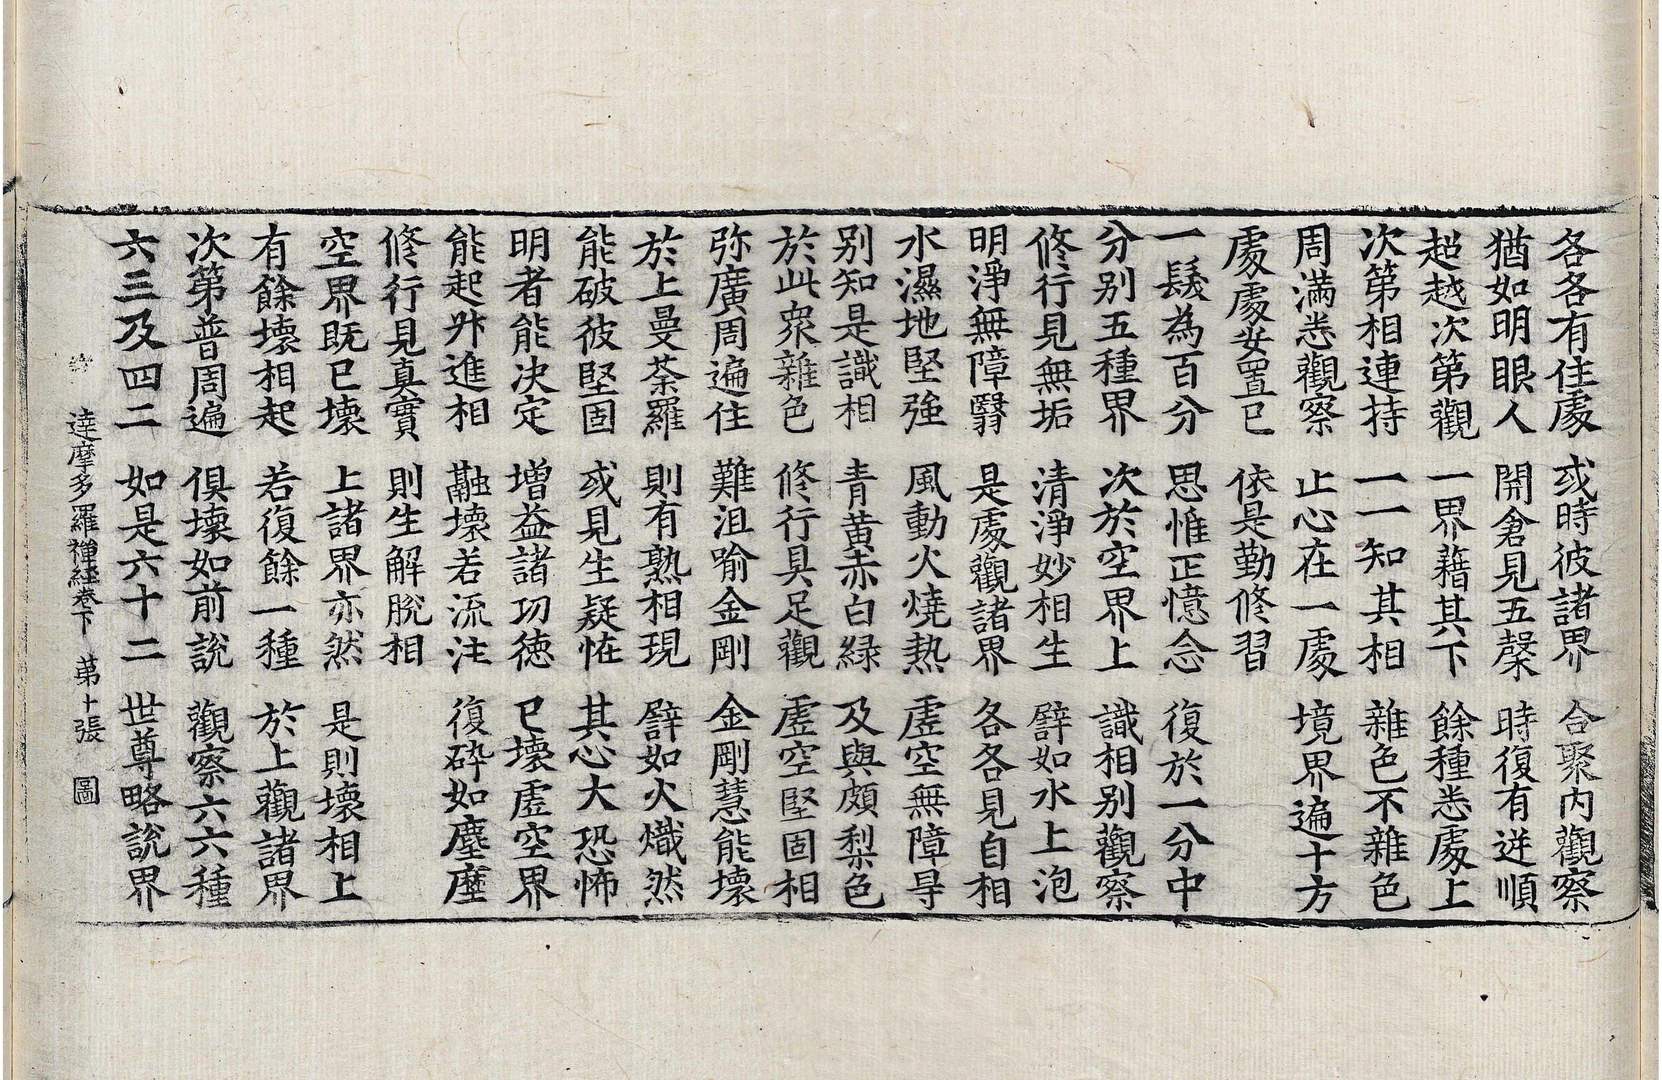 各各有住處 或時彼諸界 合聚內觀察
猶如明眼人 開倉見五穀 時復有逆順
超越次第觀 一界藉其下 餘種悉處上
次第相連持 一一知其相 雜色不雜色
周滿悉觀察 止心在一處 境界遍十方
處處安置已 依是勤修習
一髮為百分 思惟正憶念 復於一分中
分别五種界 次於空界上 識相别觀察
修行見無垢 清淨妙相生 譬如水上泡
明淨無障翳 是處觀諸界 各各見自相
水濕地堅強 風動火燒熱 虛空無障㝵
别知是識相 青黄赤白緑 及與頗梨色
於此衆雜色 修行具足觀 虛空堅固相
弥廣周遍住 難沮喻金剛 金剛慧能壞
於上曼荼羅 則有熟相現 譬如火熾然
能破彼堅固 或見生疑怪 其心大恐怖
明者能决定 增益諸功德 已壞虛空界
能起升進相 融壞若流注 復碎如塵塵
修行見真實 則生解脫相
空界既已壞 上諸界亦然 是則壞相上
有餘壞相起 若復餘一種 於上觀諸界
次第普周遍 俱壞如前說 觀察六六種
六三及四二 如是六十二 世尊略說界
達摩多羅禪経卷下 苐十張 圖